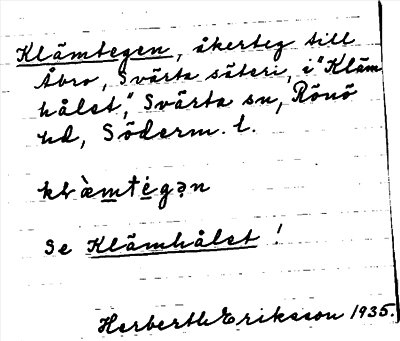 Klämtegen, åkerteg till
Åbro, Svärta säteri, i "Kläm
hålet", Svärta sn, Rönö
hd, Söderm. l.
klæ̀mtégən
Se Klämhålet!
Herberth Eriksson 1935.